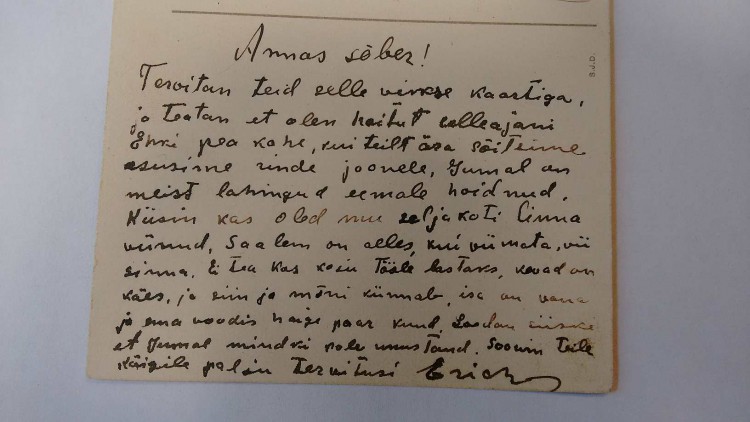 Armas sõber!
Tervitan teid selle väikse kaartiga,
ja teatan et olen hoitut selleajani
Ehki pea kohe, kui teilt ära sõitsime
asusime rinde joonele, Jumal on
meist lahingud eemale hoidnud.
Küsin kas oled mu seljakoti linna
viinud, Saalem on alles, kui viimata, vii
sinna. Ei tea kas koju tööle lastaks, kevad on
käes, ja siin ja mõni künnab, isa on vana
ja ema voodis haige paar kuud. Loodan siiski
et Jumal mindki pole unustand. Soovin teile
kõigile palju tervitusi Erich
S.J.D.